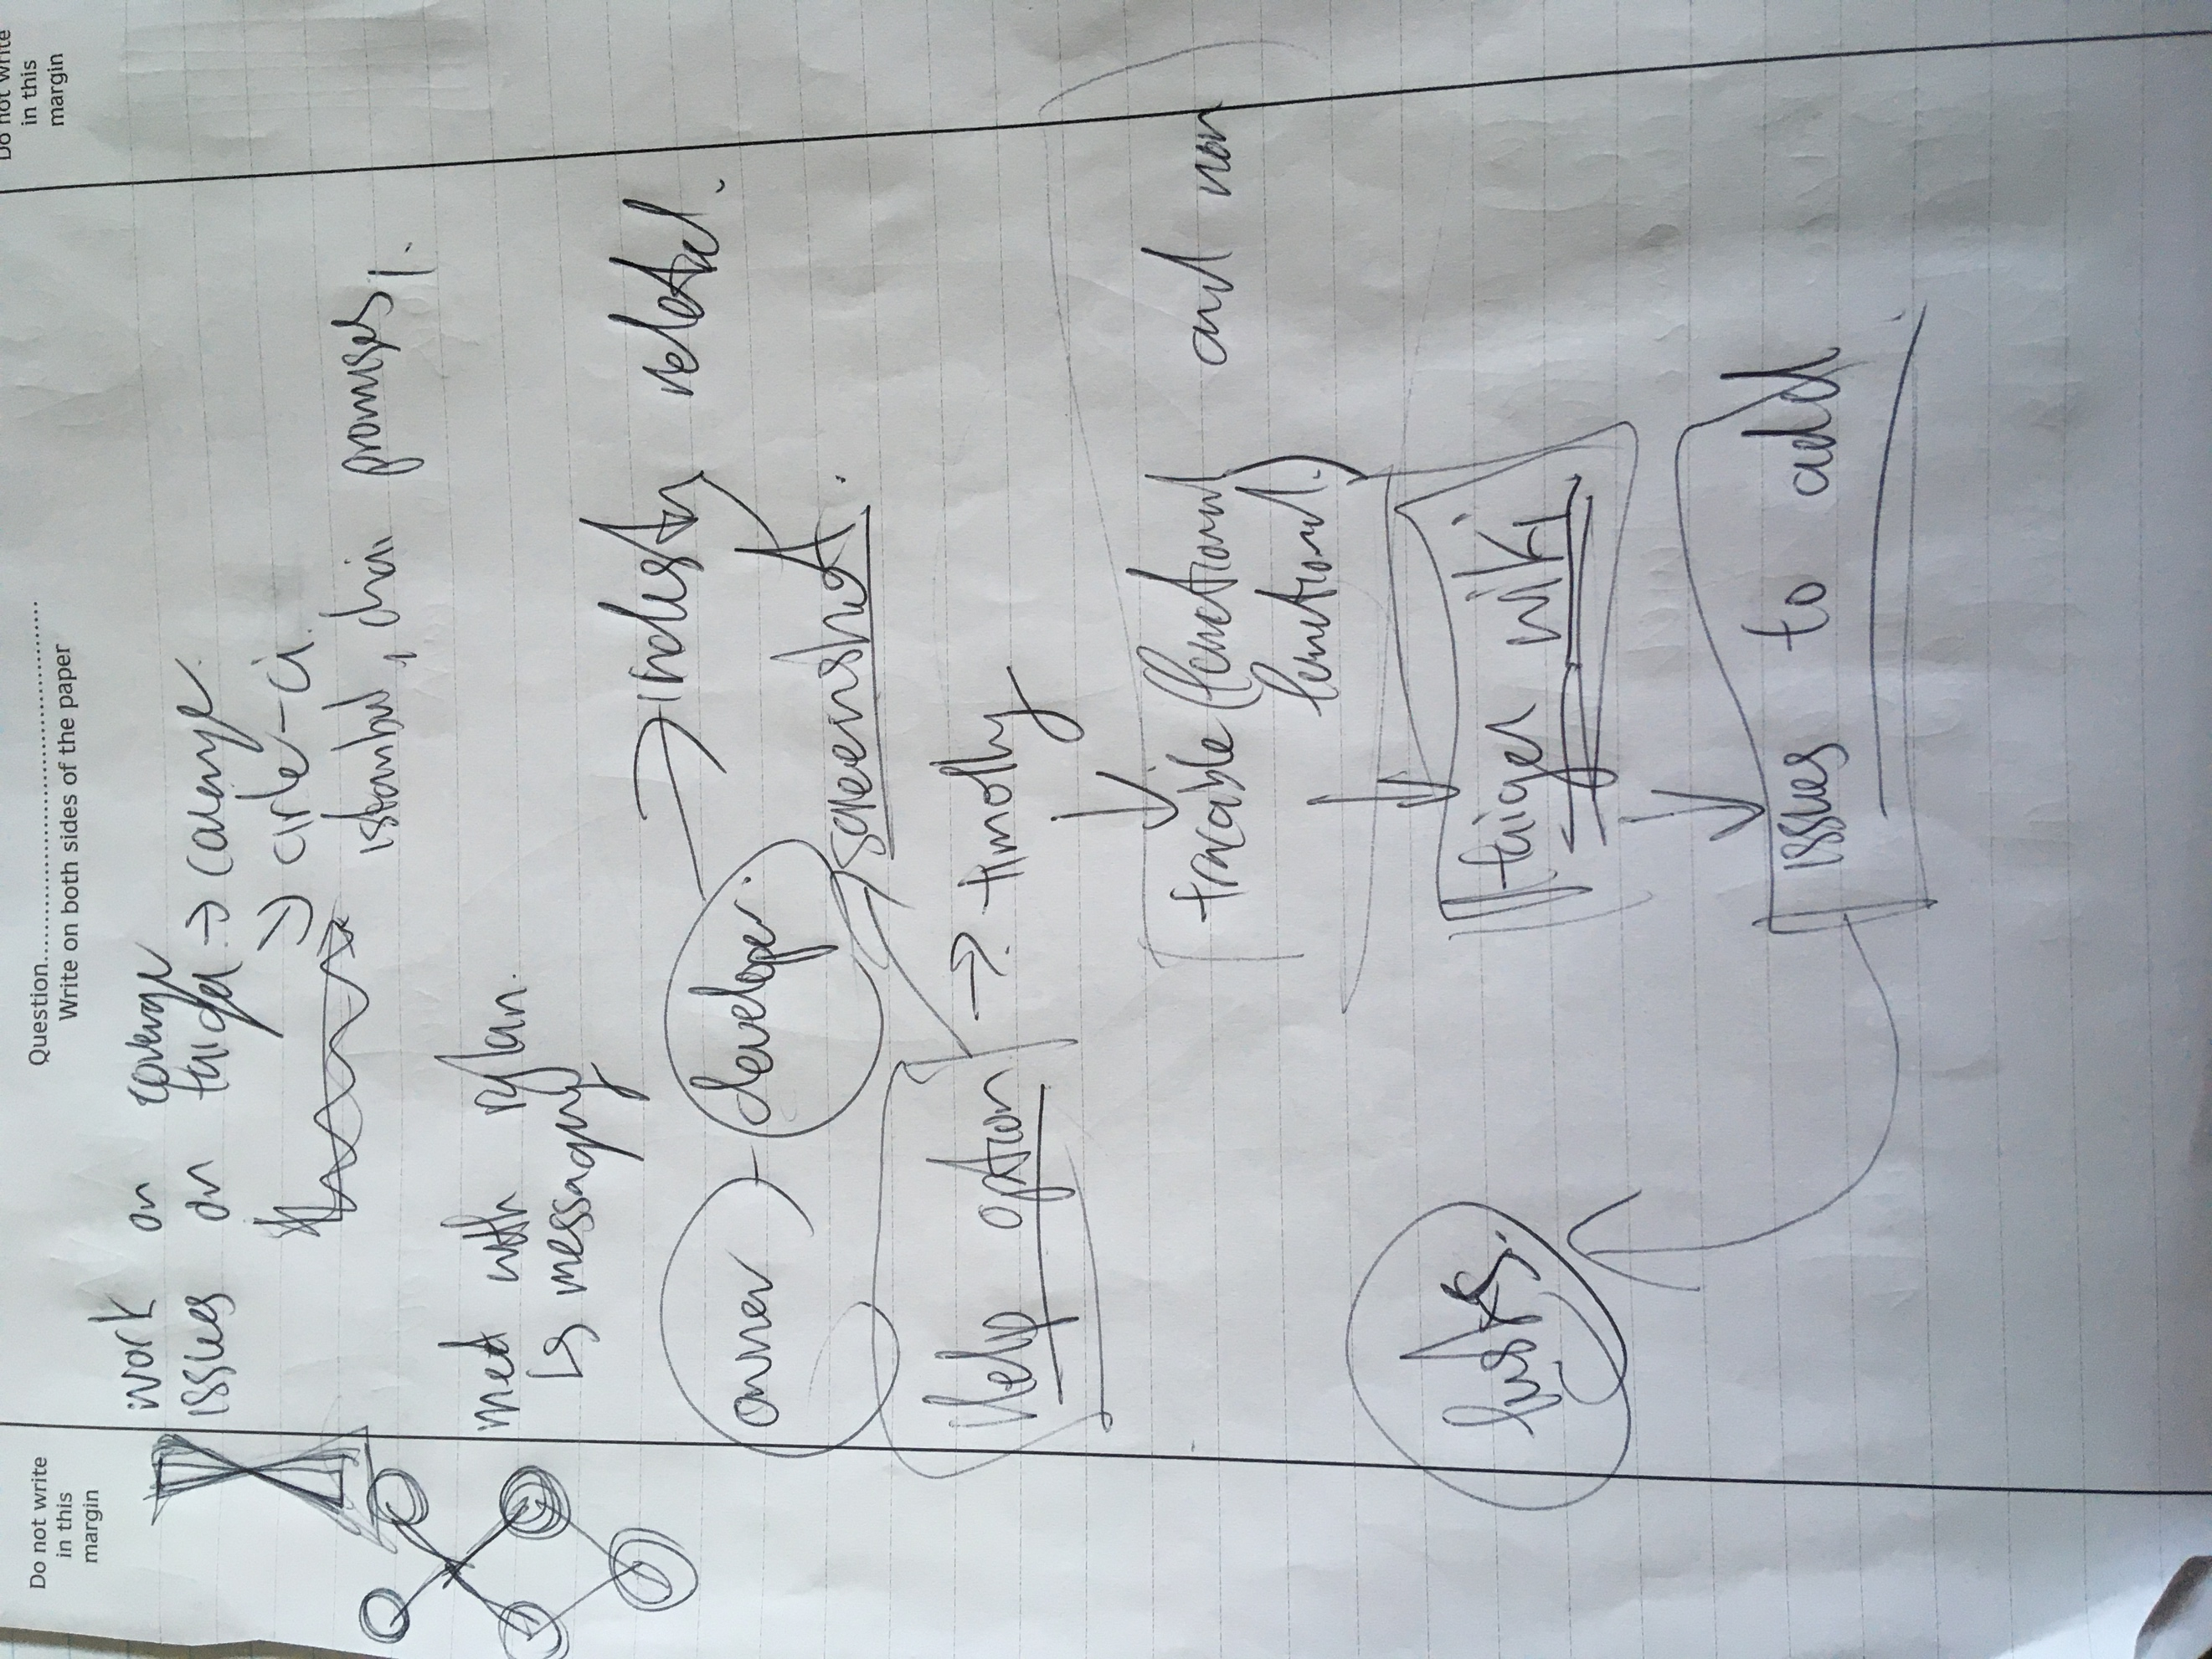 Question..............................
Write on both sides of the paper
Do not write
in this
margin
Do not write
in this
margin
work on coverage
issues on taiga → coverage
→ circle-ci.
istanbul, chai promises
met with rylan.
↳ messaging
owner - developer. → industry related.
screenshot.
Help option → timolly
tracable (functional and non
functional.)
taiga wiki
issues to add